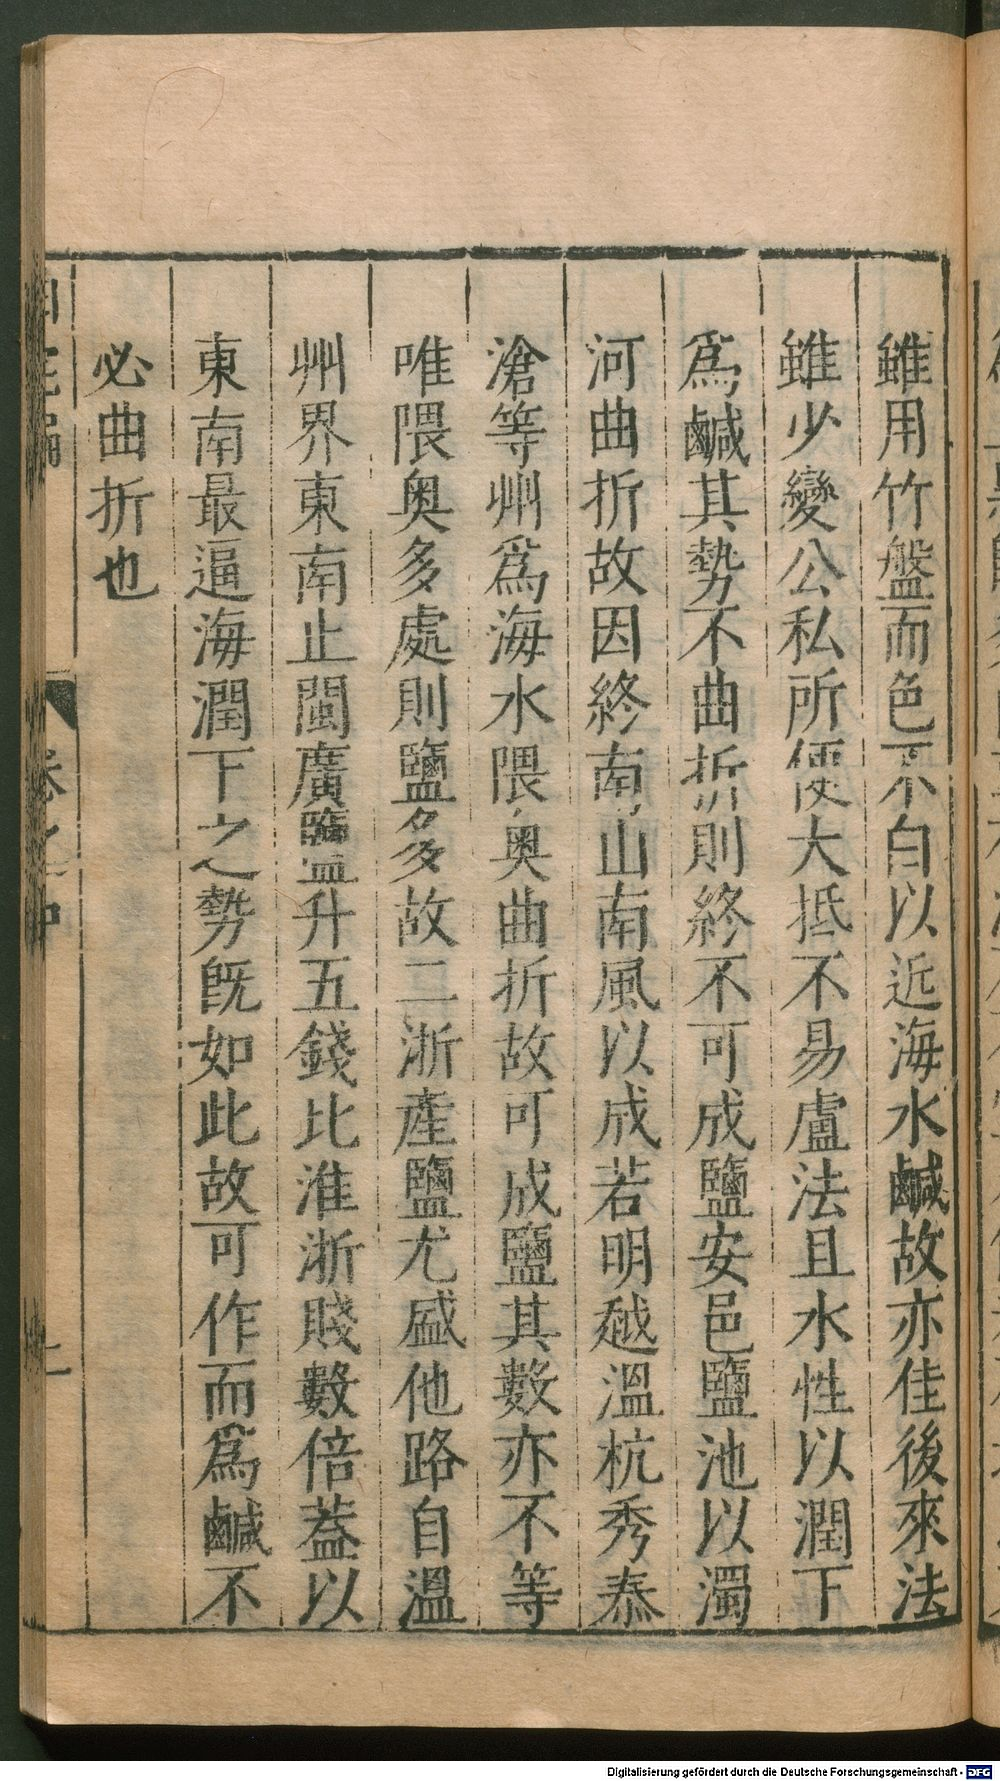 雖用竹盤而色不白以近海水鹹故亦佳後來法
雖少變公私所便大抵不易盧法且水性以潤下
爲鹹其勢不曲折則終不可成鹽安邑鹽池以濁
河曲折故因終南山南風以成若明越溫杭秀泰
滄等州爲海水隈奧曲折故可成鹽其數亦不等
唯隈奧多處則鹽多故二浙產鹽尤盛他路自溫
州界東南止閩廣鹽升五錢比淮浙賤數倍葢以
東南最逼海潤下之勢旣如此故可作而爲鹹不
必曲折也
卷之中
Digitalisierung gefördert durch die Deutsche Forschungsgemeinschaft - DFG